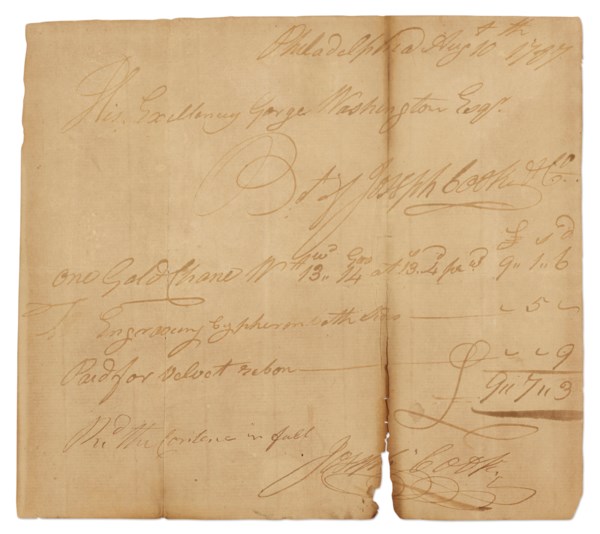 Philadelphia Augt 10th 1787
His Excellency George Washington Esqr.
Bot of Joseph Cook & Co.
£ s d
one Gold Chane Wt 13 dwt 14 Grs at 13s 4d pr dwt 9"1"6
To Engraving Cyphers on both Sides 5
Paid for velvet ribon 9
£ 9"7"3
Recd the Contence in full
Joseph Cook